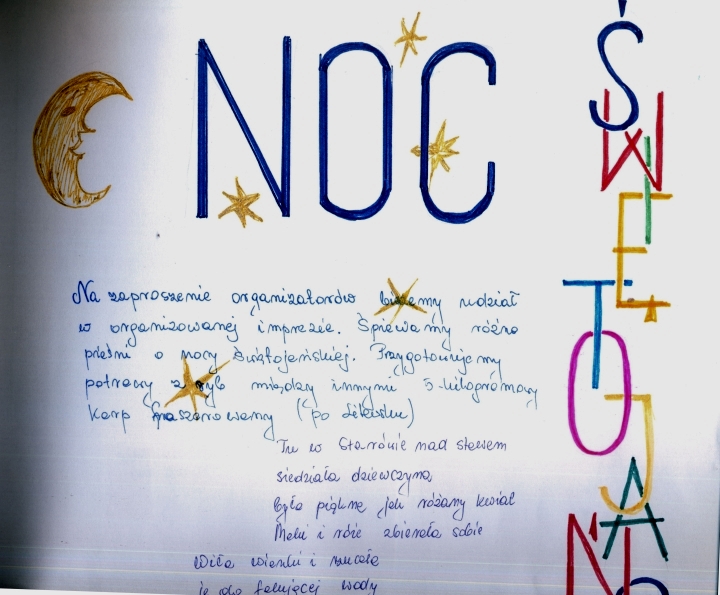 NOC
ŚWIĘTOJAŃ
Na zaproszenie organizatorów bierzemy udział
w organizowanej imprezie. Śpiewamy różne
pieśni o nocy Świętojańskiej. Przygotowujemy
potrawy z ryb między innymi 5-kilogramowy
karp faszerowany (po
Tu w Starówie nad stawem
siedziała dziewczyna
Była piękna jak różany kwiat
Maki i róże zbierała sobie
Wiła wianki i rzucała
je do falującej wody